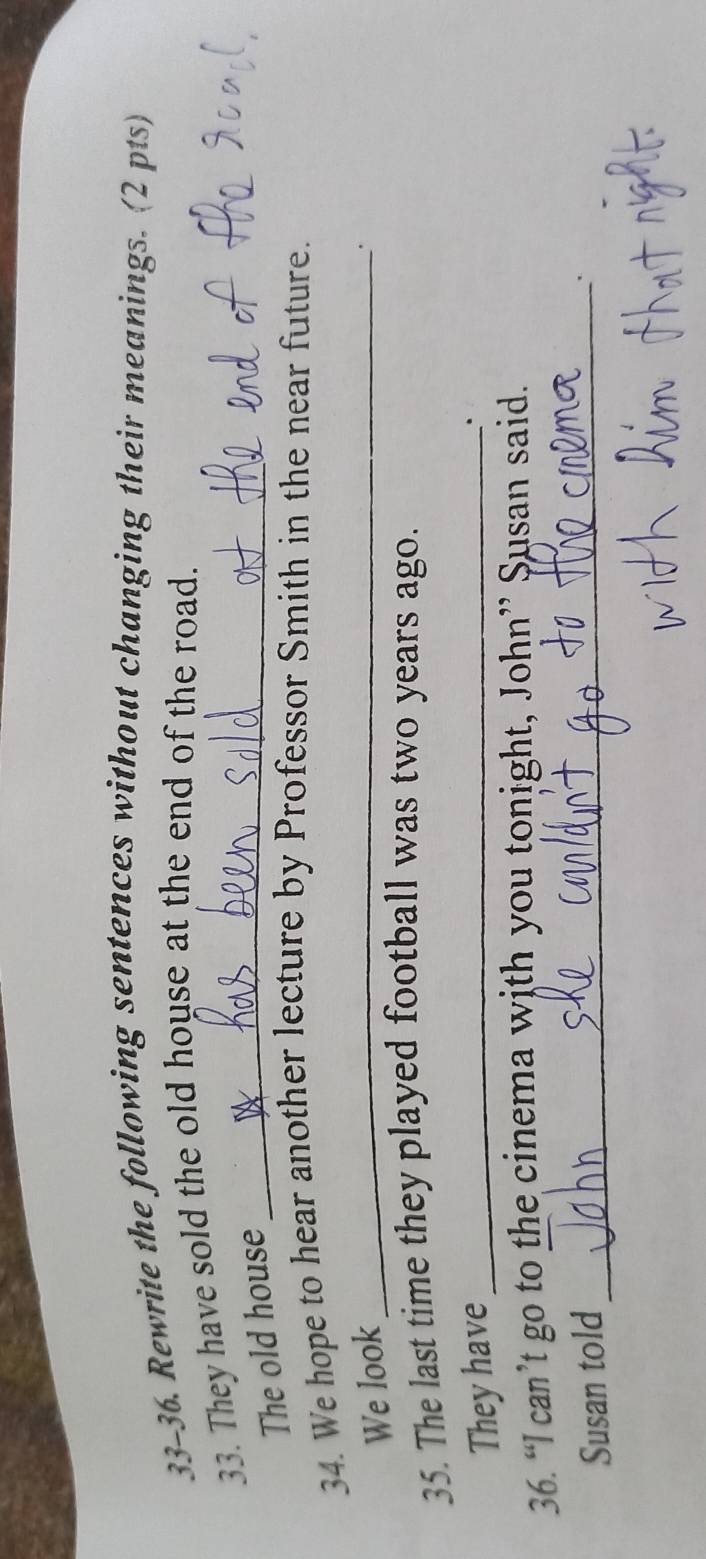 33-36. Rewrite the following sentences without changing their meanings. (2 pts)
33. They have sold the old house at the end of the road.
The old house has been sold at the end of the road.
34. We hope to hear another lecture by Professor Smith in the near future.
We look .
35. The last time they played football was two years ago.
They have .
36. “I can’t go to the cinema with you tonight, John” Susan said.
Susan told John she couldn't go to the cnema .
with him that night.